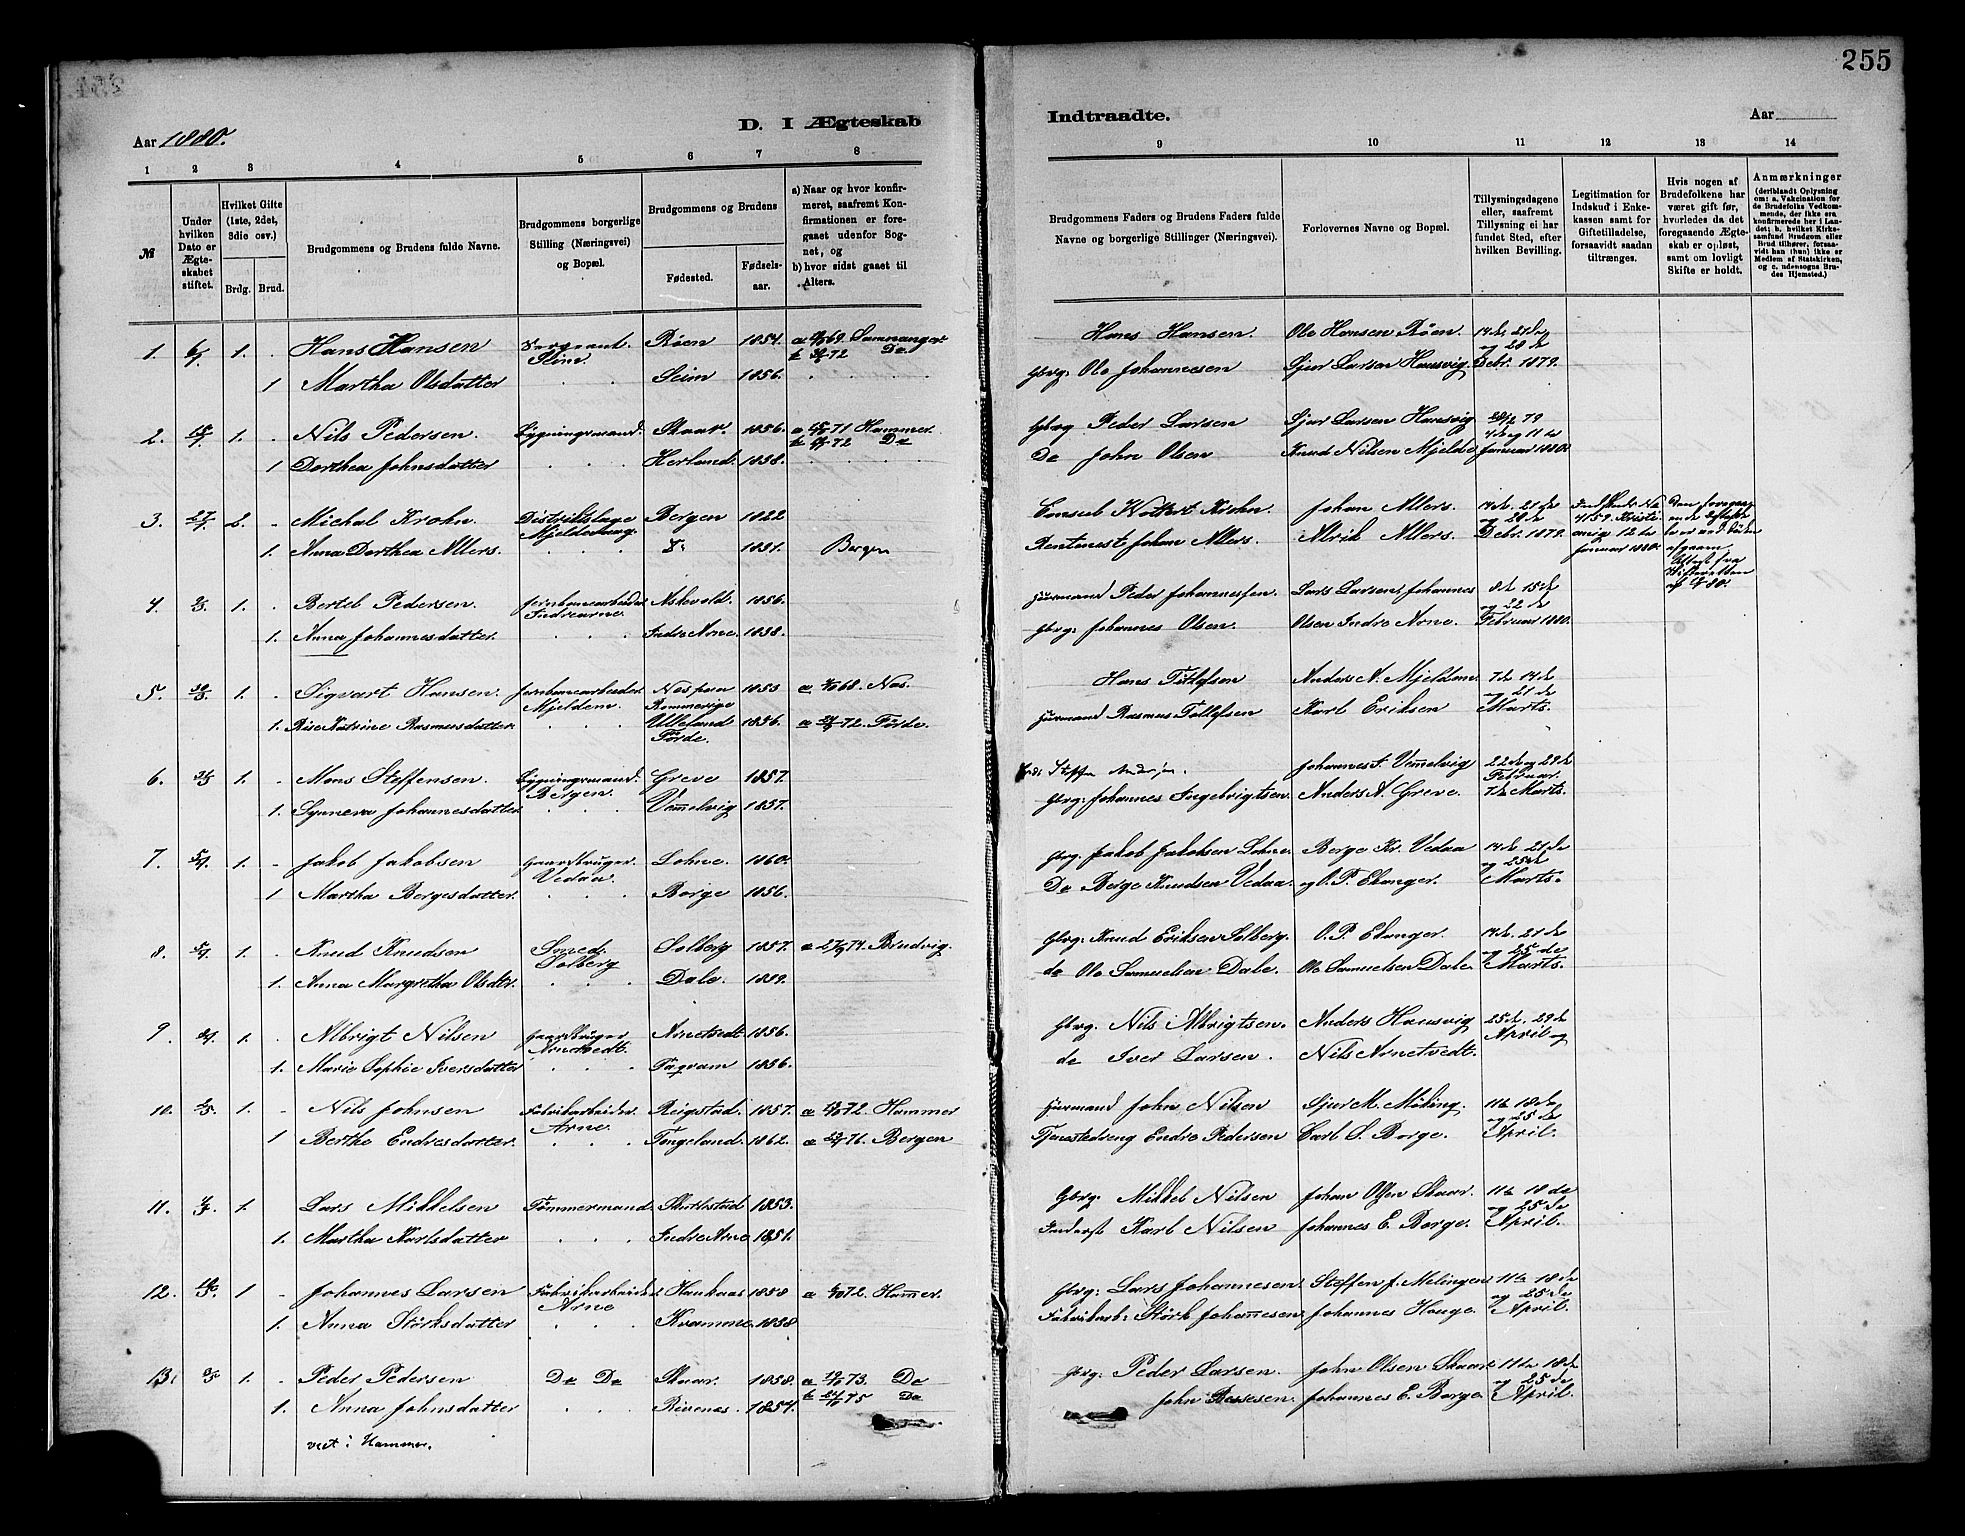 255
Aar 1880.
D. I Ægteskab Indtraadte.
Aar
1 2 3 4 5 6 7 8 9 10 11 12 13 14
№
Under hvilken Dato er Ægteskabet stiftet.
Hvilket Gifte (1ste, 2det, 3die osv.)
Brdg. Brud.
Brudgommens og Brudens fulde Navne.
Brudgommens borgerlige Stilling (Næringsvei) og Bopæl.
Brudgommens og Brudens
Fødested. Fødselsaar.
a) Naar og hvor konfirmeret, saafremt Konfirmationen er foregaaet udenfor Sognet, og
b) hvor sidst gaaet til Alters.
Brudgommens Faders og Brudens Faders fulde Navne og borgerlige Stillinger (Næringsvei).
Forlovernes Navne og Bopæl.
Tillysningsdagene eller, saafremt Tillysning ei har fundet Sted, efter hvilken Bevilling.
Legitimation for Indskud i Enkekassen samt for Giftetilladelse, forsaavidt saadan tiltrænges.
Hvis nogen af Brudefolkene har været gift før, hvorledes da det foregaaende Ægteskab er opløst, samt om lovligt Skifte er holdt.
Anmærkninger (deriblandt Oplysning om: a. Vakcination for de Brudefolks Vedkommende, der ikke era konfirmerede her i Landet; b. hvilket Kirkesamfund Brudgom eller Brud tilhører, forsaavidt han (hun) ikke er Medlem af Statskirken, og c. udensogns Brudes Hjemsted.)
1. 6/1 1. Hans Hansen Sergeant Seim Røen 1854. 69. Samnanger 72 Do Hans Hansen. Ole Hansen Røen. 14de 21de og 28de
1 Martha Olsdatter Seim 1856. Gbrg: Ole Johannesen Sjur Larsen Hausvig Debr. 1879.
2. 1. Nils Pedersen. Bygningsmand. Skaar. 1856. 71 Hammer 72 Do Gbrg Peder Larsen Sjur Larsen Hausvig 28/12 79 4de og 11te
1 Dorthea Johnsdatter Herland. 1838. Do John Olsen Knud Nilsen Mjelde Januar 1880.
3. 27/1 2. Michal Krohn. Distriktslæge Bergen 1822 Consul Krohn. Johan Allers. 14de 21de og 28de
1. Anna Dorthea Allers. 1831. Bergen Johan Allers. Alrik Allers. Debr. 1879. 12te Januar 1880.
4. 1. Bertel Pedersen. Jernbanearbeider Indrearne. Askvold. 1856. Husmand Peder Johannessen. Lars Larsen, Johannes 8de 15de og 22de
1. Anna Johannesdatter. Indre Arne. 1838. Gbrg: Johannes Olsen. Olsen Indre Arne. Februar 1880.
5. 1. Sigvart Hansen. Jernbanearbeider Mjeldem. Nes 1853 68. Nes. Hans Tollefsen Anders A. Mjeldem 7de 14de og 21de
1. Katrine Rasmusdatter. Ulleland Førde. 1856. 72. Førde. Husmand Rasmus Tollefsen Karl Eriksen Marts.
6. 1. Mons Steffensen. Bygningsmand. Bergen. Greve 1857. Steffen Andersen. Johannes I. Unnelvig 22de og 29de Februar.
1. Synneva Johannesdatter Unnelvig 1857. Gbrg: Johannes Ingebrigtsen. Anders A. Greve. 7de Marts.
7. 5/4 1. Jakob Jakobsen Gaardbruger. Vedaa. Lohne. 1860. Gbrg. Jakob Jakobsen Lohne. Berge Kr. Vedaa 14de 21de og 25de
1 Martha Bergesdatter. Borge 1856. Do Berge Knudsen Vedaa. og O. P. Ekanger. Marts.
8. 5/4 1. Knud Knudsen Smed. Solberg Solberg 1857. 74. Brudvig. Gbrg: Knud Eriksen Solberg. O. P. Ekanger 14de 21de og 25de
1. Anna Margretha Olsdtr. Dale. 1859. do Ole Samuelsen Dale. Ole Samuelsen Dale. Marts.
9. 1. Albrigt Nilsen Gaardbruger Arnetvedt. Arnetvedt 1856. Gbrg. Nils Albrigtsen. Anders Hausvig 25de 29de
1. Marie Sophie Iversdatter Fagvam 1856. de Iver Larsen. Nils Arnetvedt. April og
10. 1. Nils Johnsen Fabrikarbeider Arne. Reigstad. 1857. 72. Hammer Husmand John Nilsen Sjur M. Møling. 11te 18de og 25de
1 Berthe Endresdatter. Tongeland 1862. 76. Bergen Tjenestedreng Endre Pedersen Carl S. Borge. April.
11. 1. Lars Mikkelsen Tømmermand 1853. Gbrg: Mikkel Nilsen Johan Olsen Skaar. 11te 18de og 25de
1. Martha Karlsdatter Indre Arne 1851. Inderst Karl Nilsen Johannes E. Borge. April.
12. 1 Johannes Larsen Fabrikarbeider Arne Haukaas 1858 72. Hammer. Gbrg: Lars Johannesen. Steffen J. Melingen 11te 18de og 25de
1. Anna Størksdatter Kvamme 1858. Fabrikarb: Størk Johannesen Johannes Hauge. April.
13. 1. Peder Pedersen Do Do Skaar. 1858. 73. Do 75 Do Gbrg: Peder Larsen John Olsen Skaar 11te 18de og 25de
1. Anna Johnsdatter Rivenes. 1854. John Bessesen. Johannes E. Borge. April.
viet i Hammer.